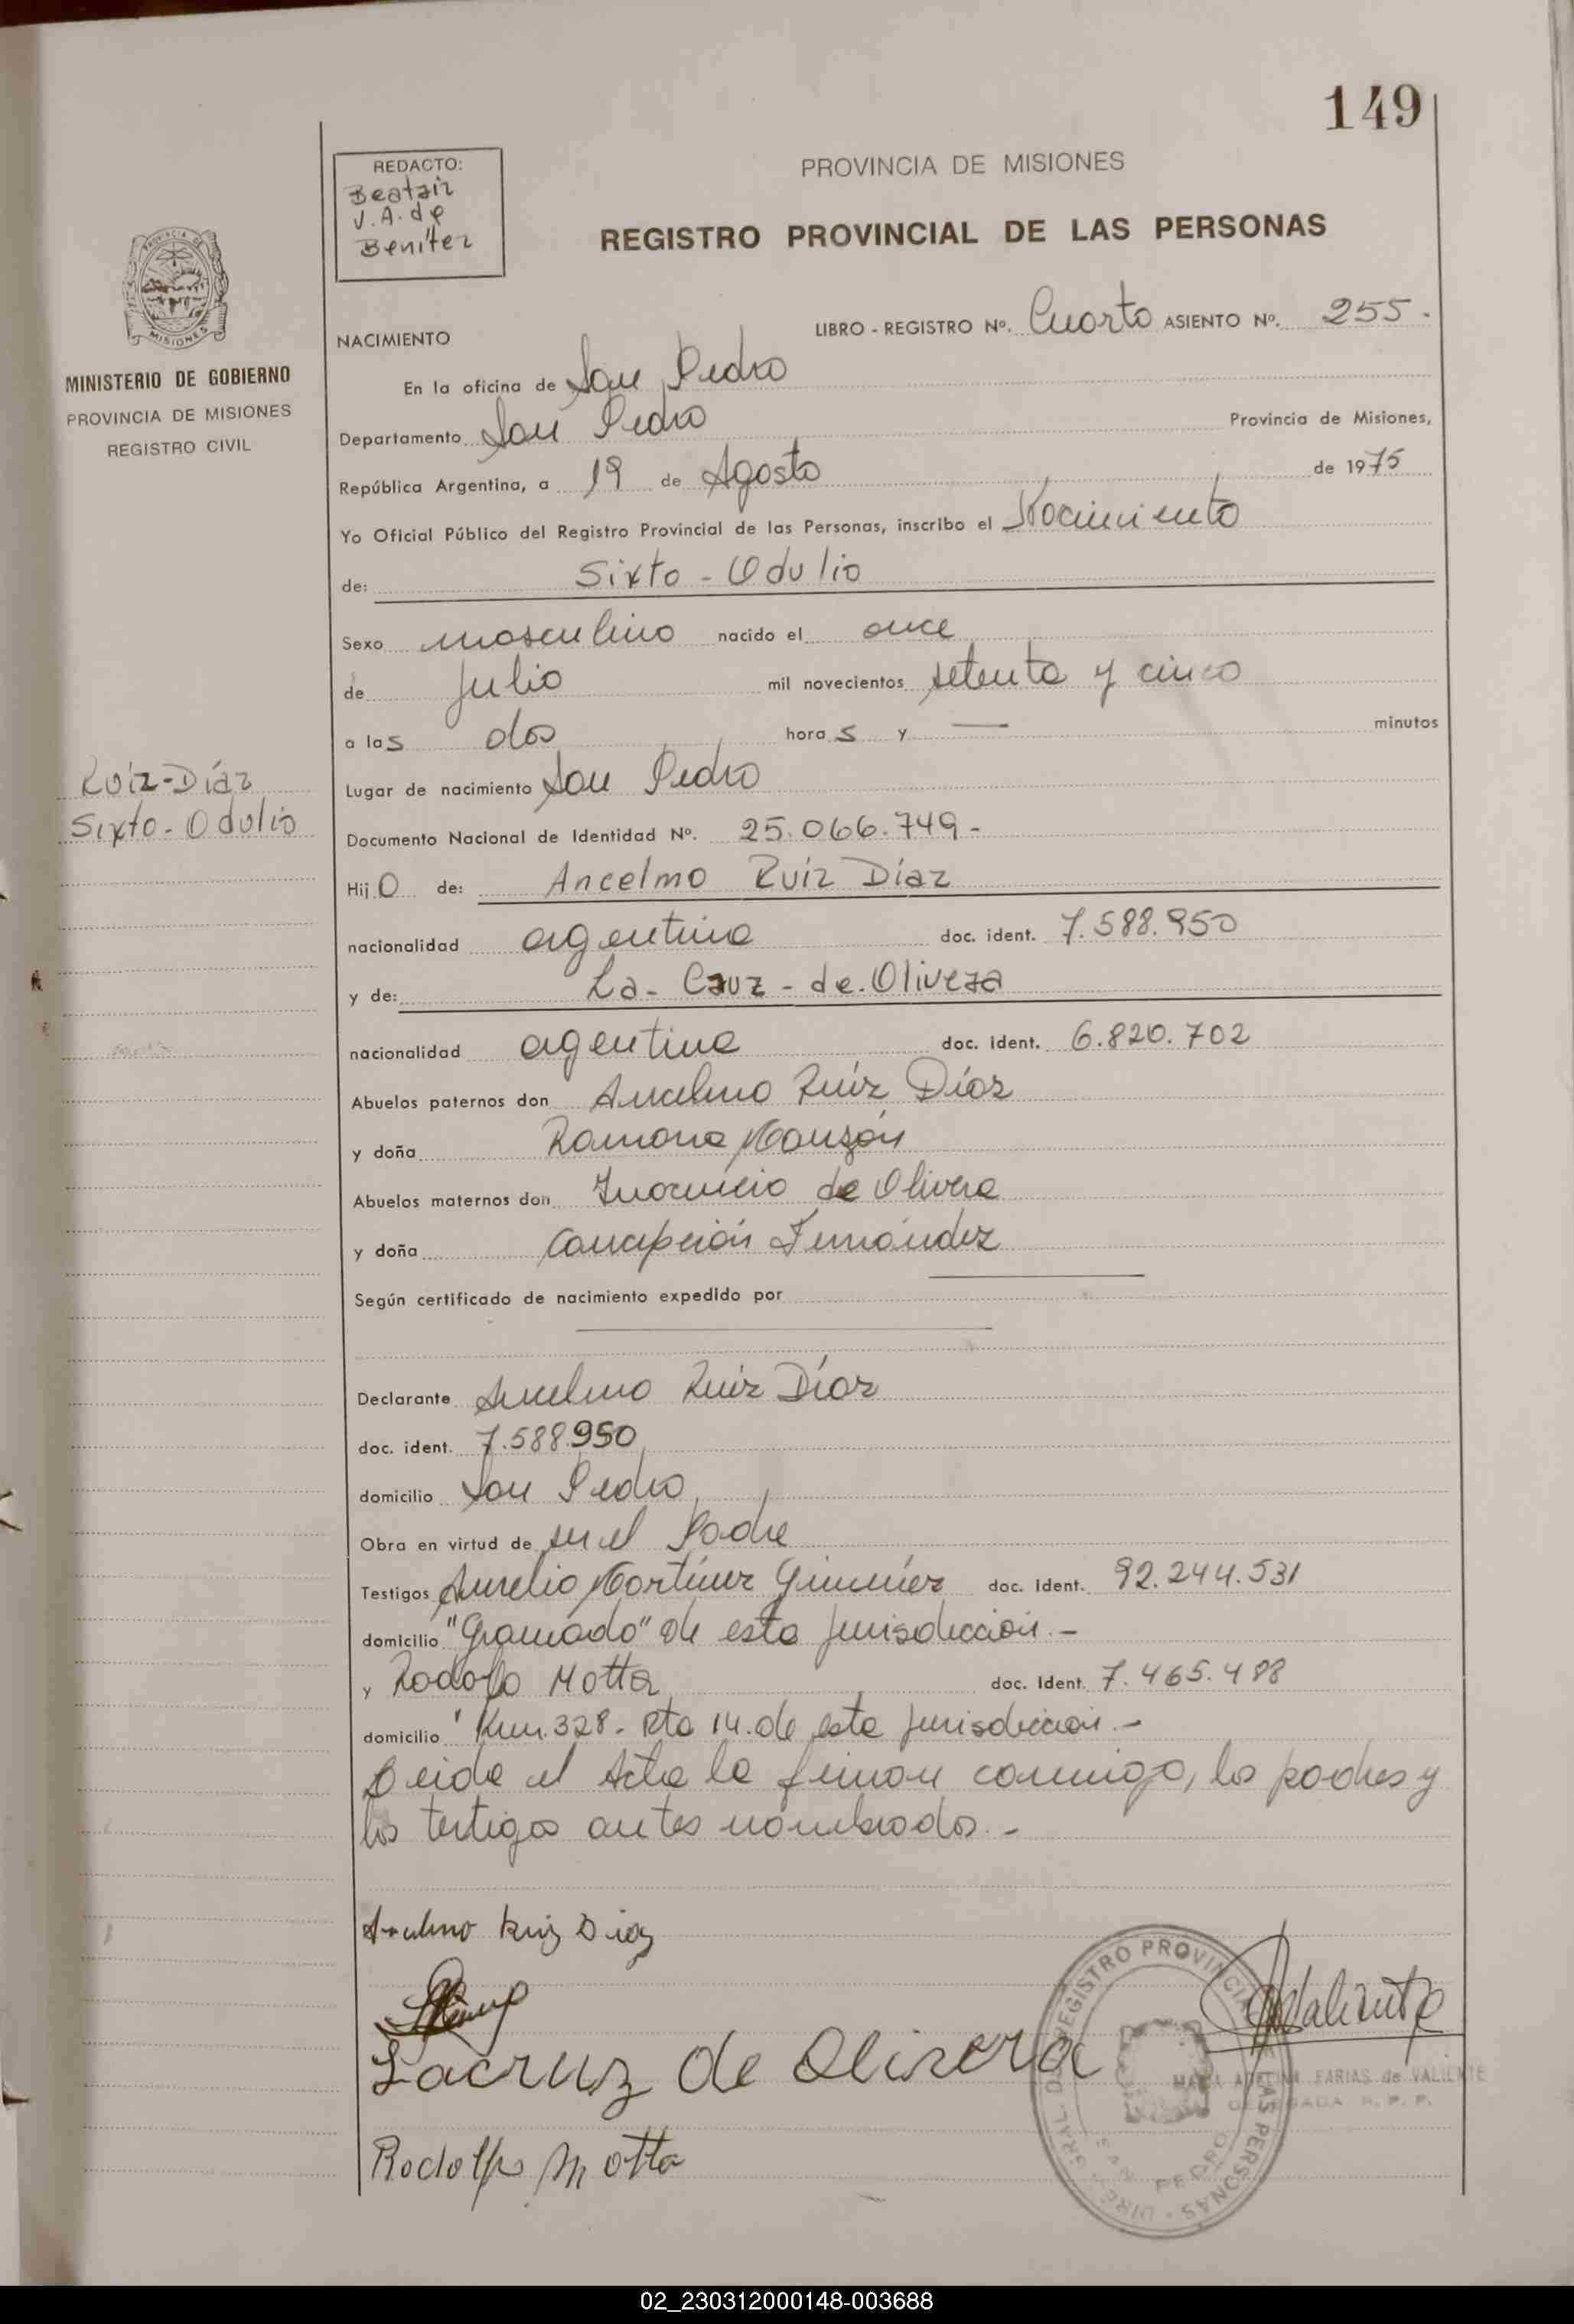 149
REDACTO:
Beatriz
V.A. de
Benítez
PROVINCIA DE MISIONES
REGISTRO PROVINCIAL DE LAS PERSONAS
PROVINCIA DE
MISIONES
MINISTERIO DE GOBIERNO
PROVINCIA DE MISIONES
REGISTRO CIVIL
NACIMIENTO
LIBRO - REGISTRO Nº. Cuarto ASIENTO Nº. 255.
En la oficina de San Pedro
Departamento San Pedro Provincia de Misiones,
República Argentina, a 19 de Agosto de 1975
Yo Oficial Público del Registro Provincial de las Personas, inscribo el Nacimiento
de: Sixto - Odulio
Sexo masculino nacido el once
de Julio mil novecientos setenta y cinco
a las dos horas y — minutos
Ruiz-Díaz
Sixto - Odulio
Lugar de nacimiento San Pedro
Documento Nacional de Identidad Nº. 25.066.749-
Hijo de: Ancelmo Ruiz Díaz
nacionalidad argentina doc. ident. 7.588.950
y de: La - Cruz - de. Olivera
nacionalidad argentina doc. ident. 6.820.702
Abuelos paternos don Ancelmo Ruíz Díaz
y doña Ramona Monzón
Abuelos maternos don de Olivera
y doña Concepción Fernández
Según certificado de nacimiento expedido por
Declarante Ancelmo Ruiz Díaz
doc. ident. 7.588950
domicilio San Pedro
Obra en virtud de ser el Padre
Testigos Aurelio Martínez Giménez doc. ident. 92.244.531
domicilio "Gramado" de esta jurisdicción.-
y Rodolfo Motta doc. ident. 7.465.488
domicilio Km. 328 - Rta 14. de esta jurisdicción.-
Leida el Acta la firman conmigo, los padres y
los testigos antes nombrados.-
Ancelmo Ruiz Diaz
Lacruz de Olivera
Rodolfo Motta
Valiente
MARIA ADELINA FARIAS de VALIENTE
DELEGADA R. P. P.
DIREC. GRAL. DE REGISTRO PROVINCIAL DE LAS PERSONAS
SAN PEDRO
02_230312000148-003688